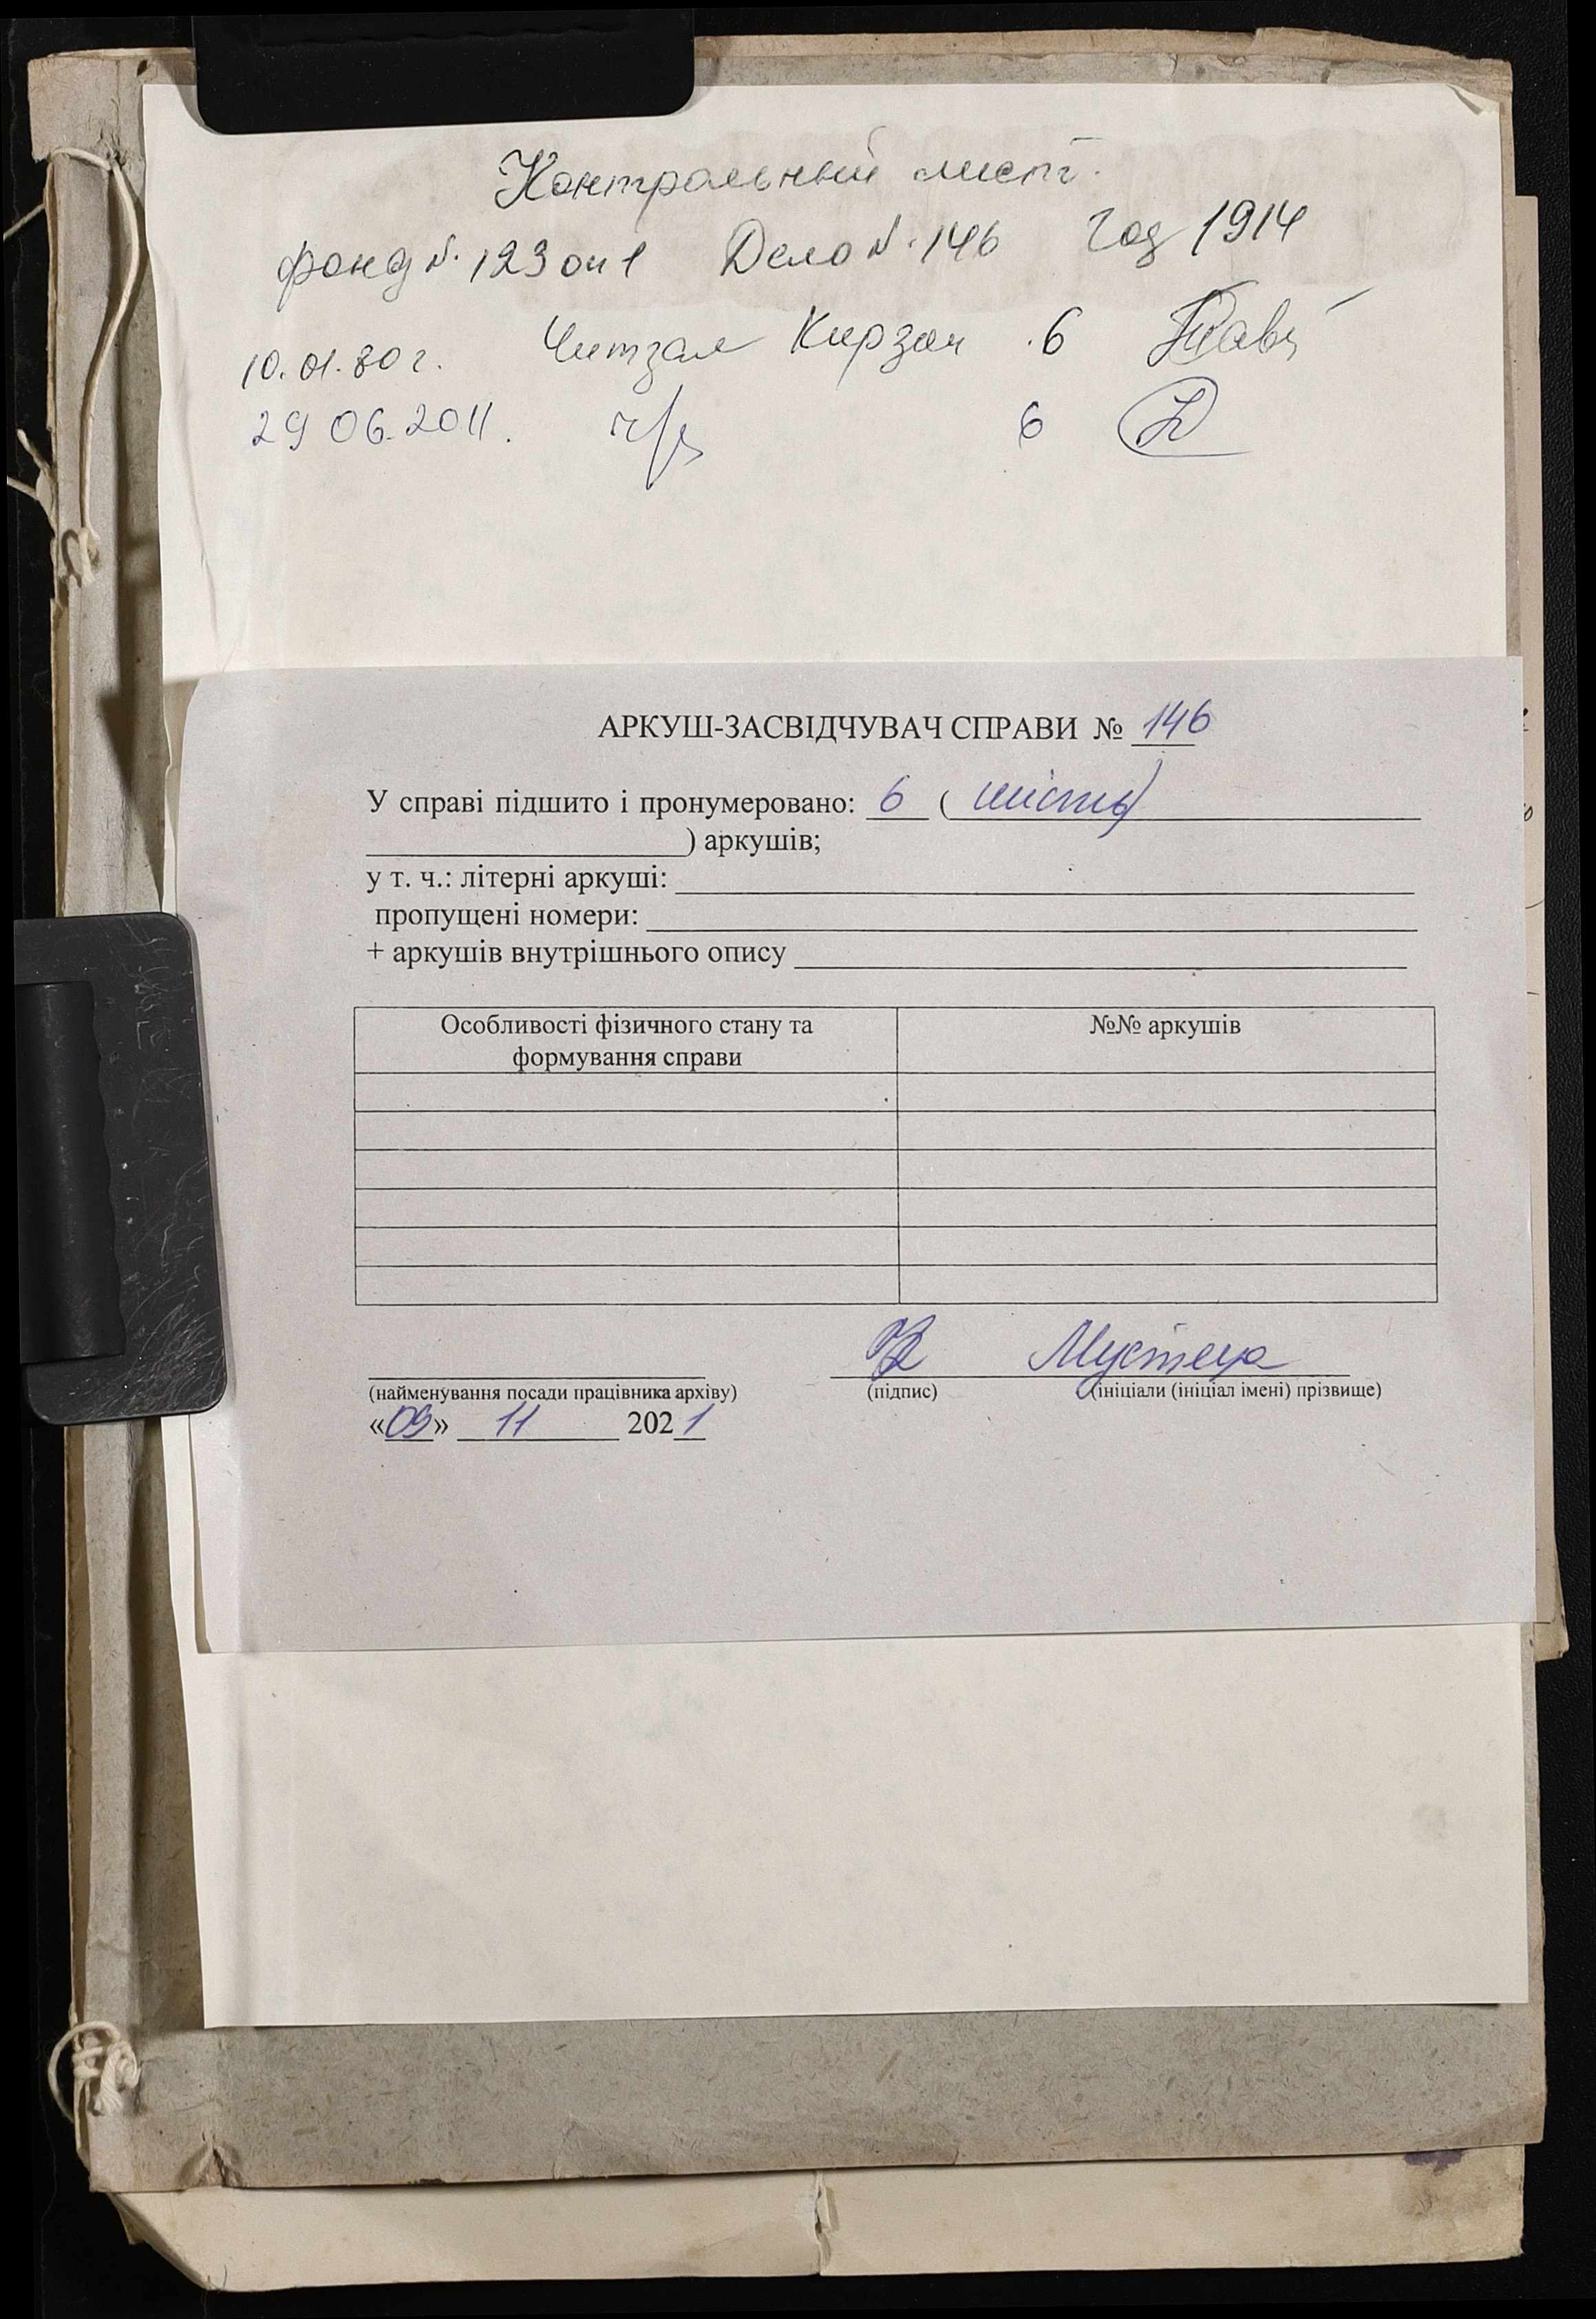 Контрольный лист.
фонд №. 123 оп 1 Дело №. 146 Год 1914
10.01.80 г. Читзал Кирзон 6
29 06.2011. 6
АРКУШ-ЗАСВІДЧУВАЧ СПРАВИ № 146
У справі підшито і пронумеровано: 6 ( шість)
) аркушів;
у т. ч.: літерні аркуші:
пропущені номери:
+ аркушів внутрішнього опису
Особливості фізичного стану та №№ аркушів
формування справи
Мустеца
(найменування посади працівника архіву) (підпис) (ініціали (ініціал імені) прізвище)
«09» 11 2021